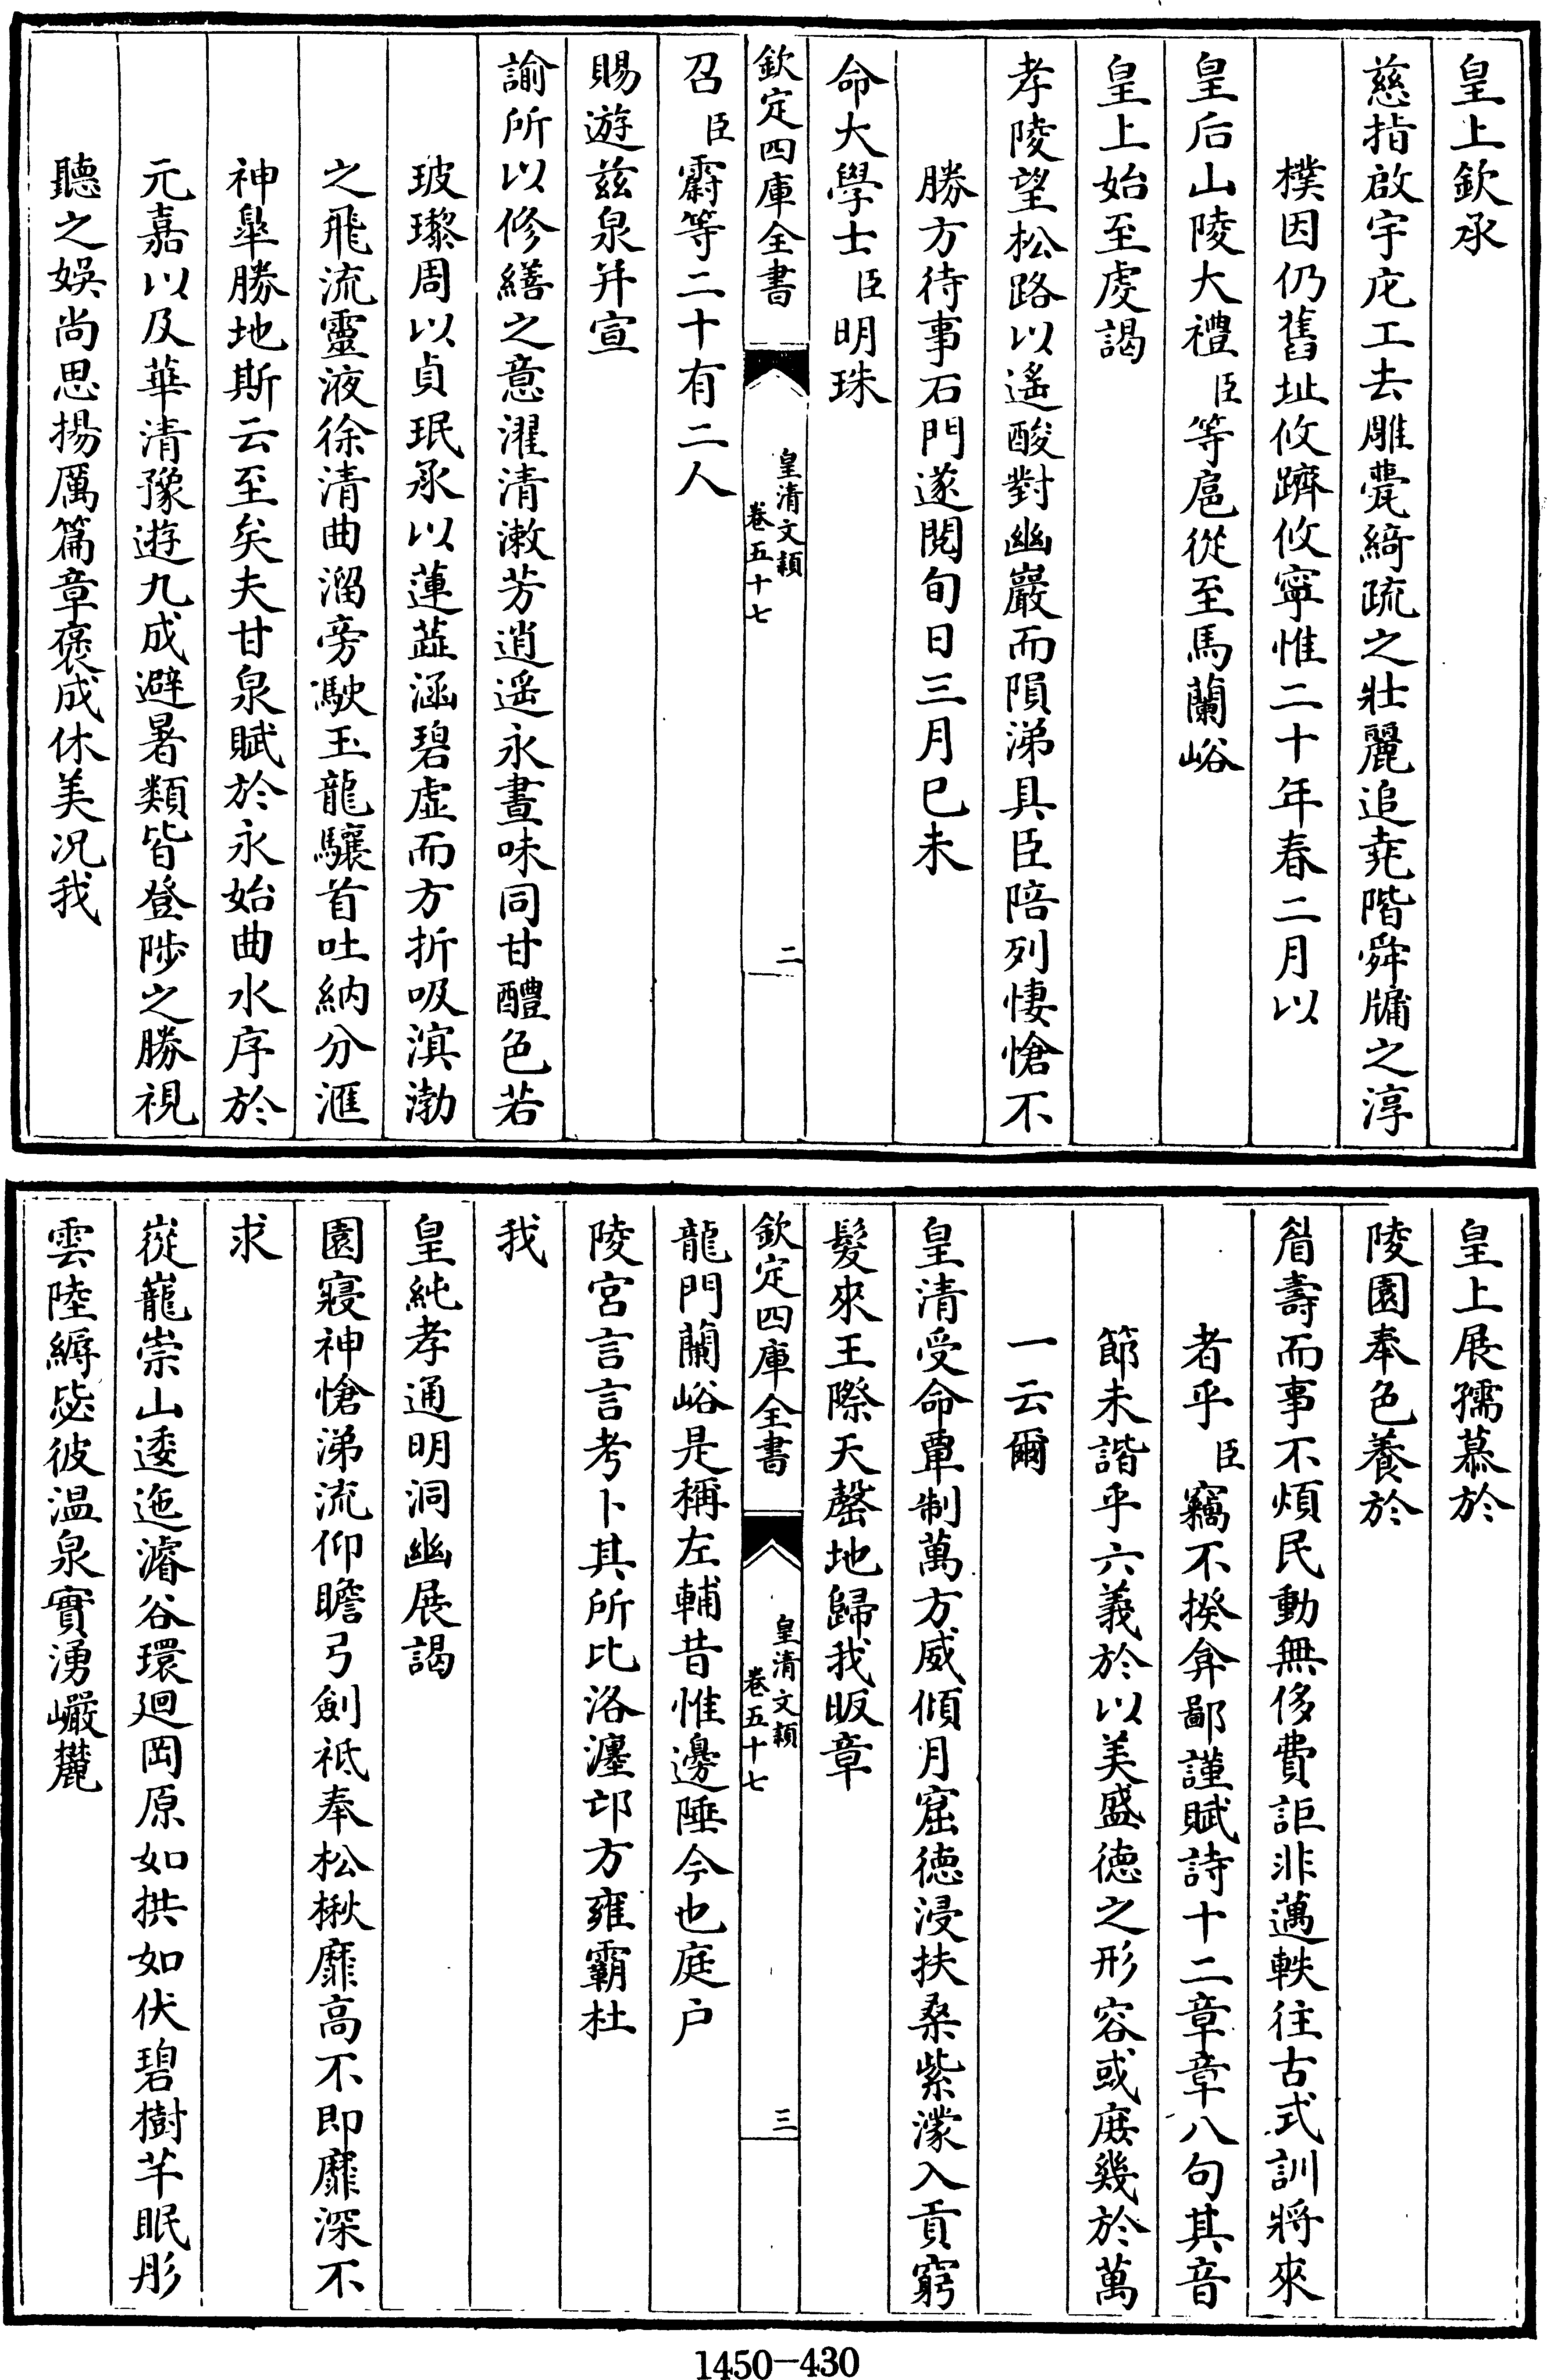 皇上欽承
慈指啟宇庀工去雕甍綺疏之壯麗追堯階舜牗之淳
樸因仍舊址攸躋攸寧惟二十年春二月以
皇后山陵大禮臣等扈從至馬蘭峪
皇上始至䖍謁
孝陵望松路以遙酸對幽巖而隕涕具臣陪列悽愴不
勝方待事石門遂閱旬日三月已未
命大學士臣明珠
欽定四庫全書
皇清文頴
卷五十七
二
召臣霨等二十有二人
賜遊兹泉并宣
諭所以修繕之意濯清漱芳逍遥永晝味同甘醴色若
玻瓈周以貞珉承以蓮蕋涵碧虚而方折吸溟渤
之飛流靈液徐清曲溜旁駛玉龍驤首吐納分滙
神臯勝地斯云至矣夫甘泉賦於永始曲水序於
元嘉以及華清豫遊九成避暑類皆登陟之勝視
聽之娛尚思揚厲篇章褒成休美况我
皇上展孺慕於
陵園奉色養於
眉壽而事不煩民動無侈費詎非邁軼往古式訓將來
者乎臣竊不揆弇鄙謹賦詩十二章章八句其音
節未諧乎六義於以美盛德之形容或庶幾於萬
一云爾
皇清受命覃制萬方威傾月窟徳浸扶桑紫濛入貢窮
髮來王際天罄地歸我昄章
欽定四庫全書
皇清文頴
卷五十七
三
龍門蘭峪是稱左輔昔惟邊陲今也庭户
陵宫言言考卜其所比洛瀍邙方雍霸杜
我
皇純孝通明洞幽展謁
園寢神愴涕流仰瞻弓劍祗奉松楸靡高不即靡深不
求
嵸巃崇山逶迤濬谷環廻岡原如拱如伏碧樹芊眠彤
雲陸縟毖彼温泉實湧巗麓
1450—430